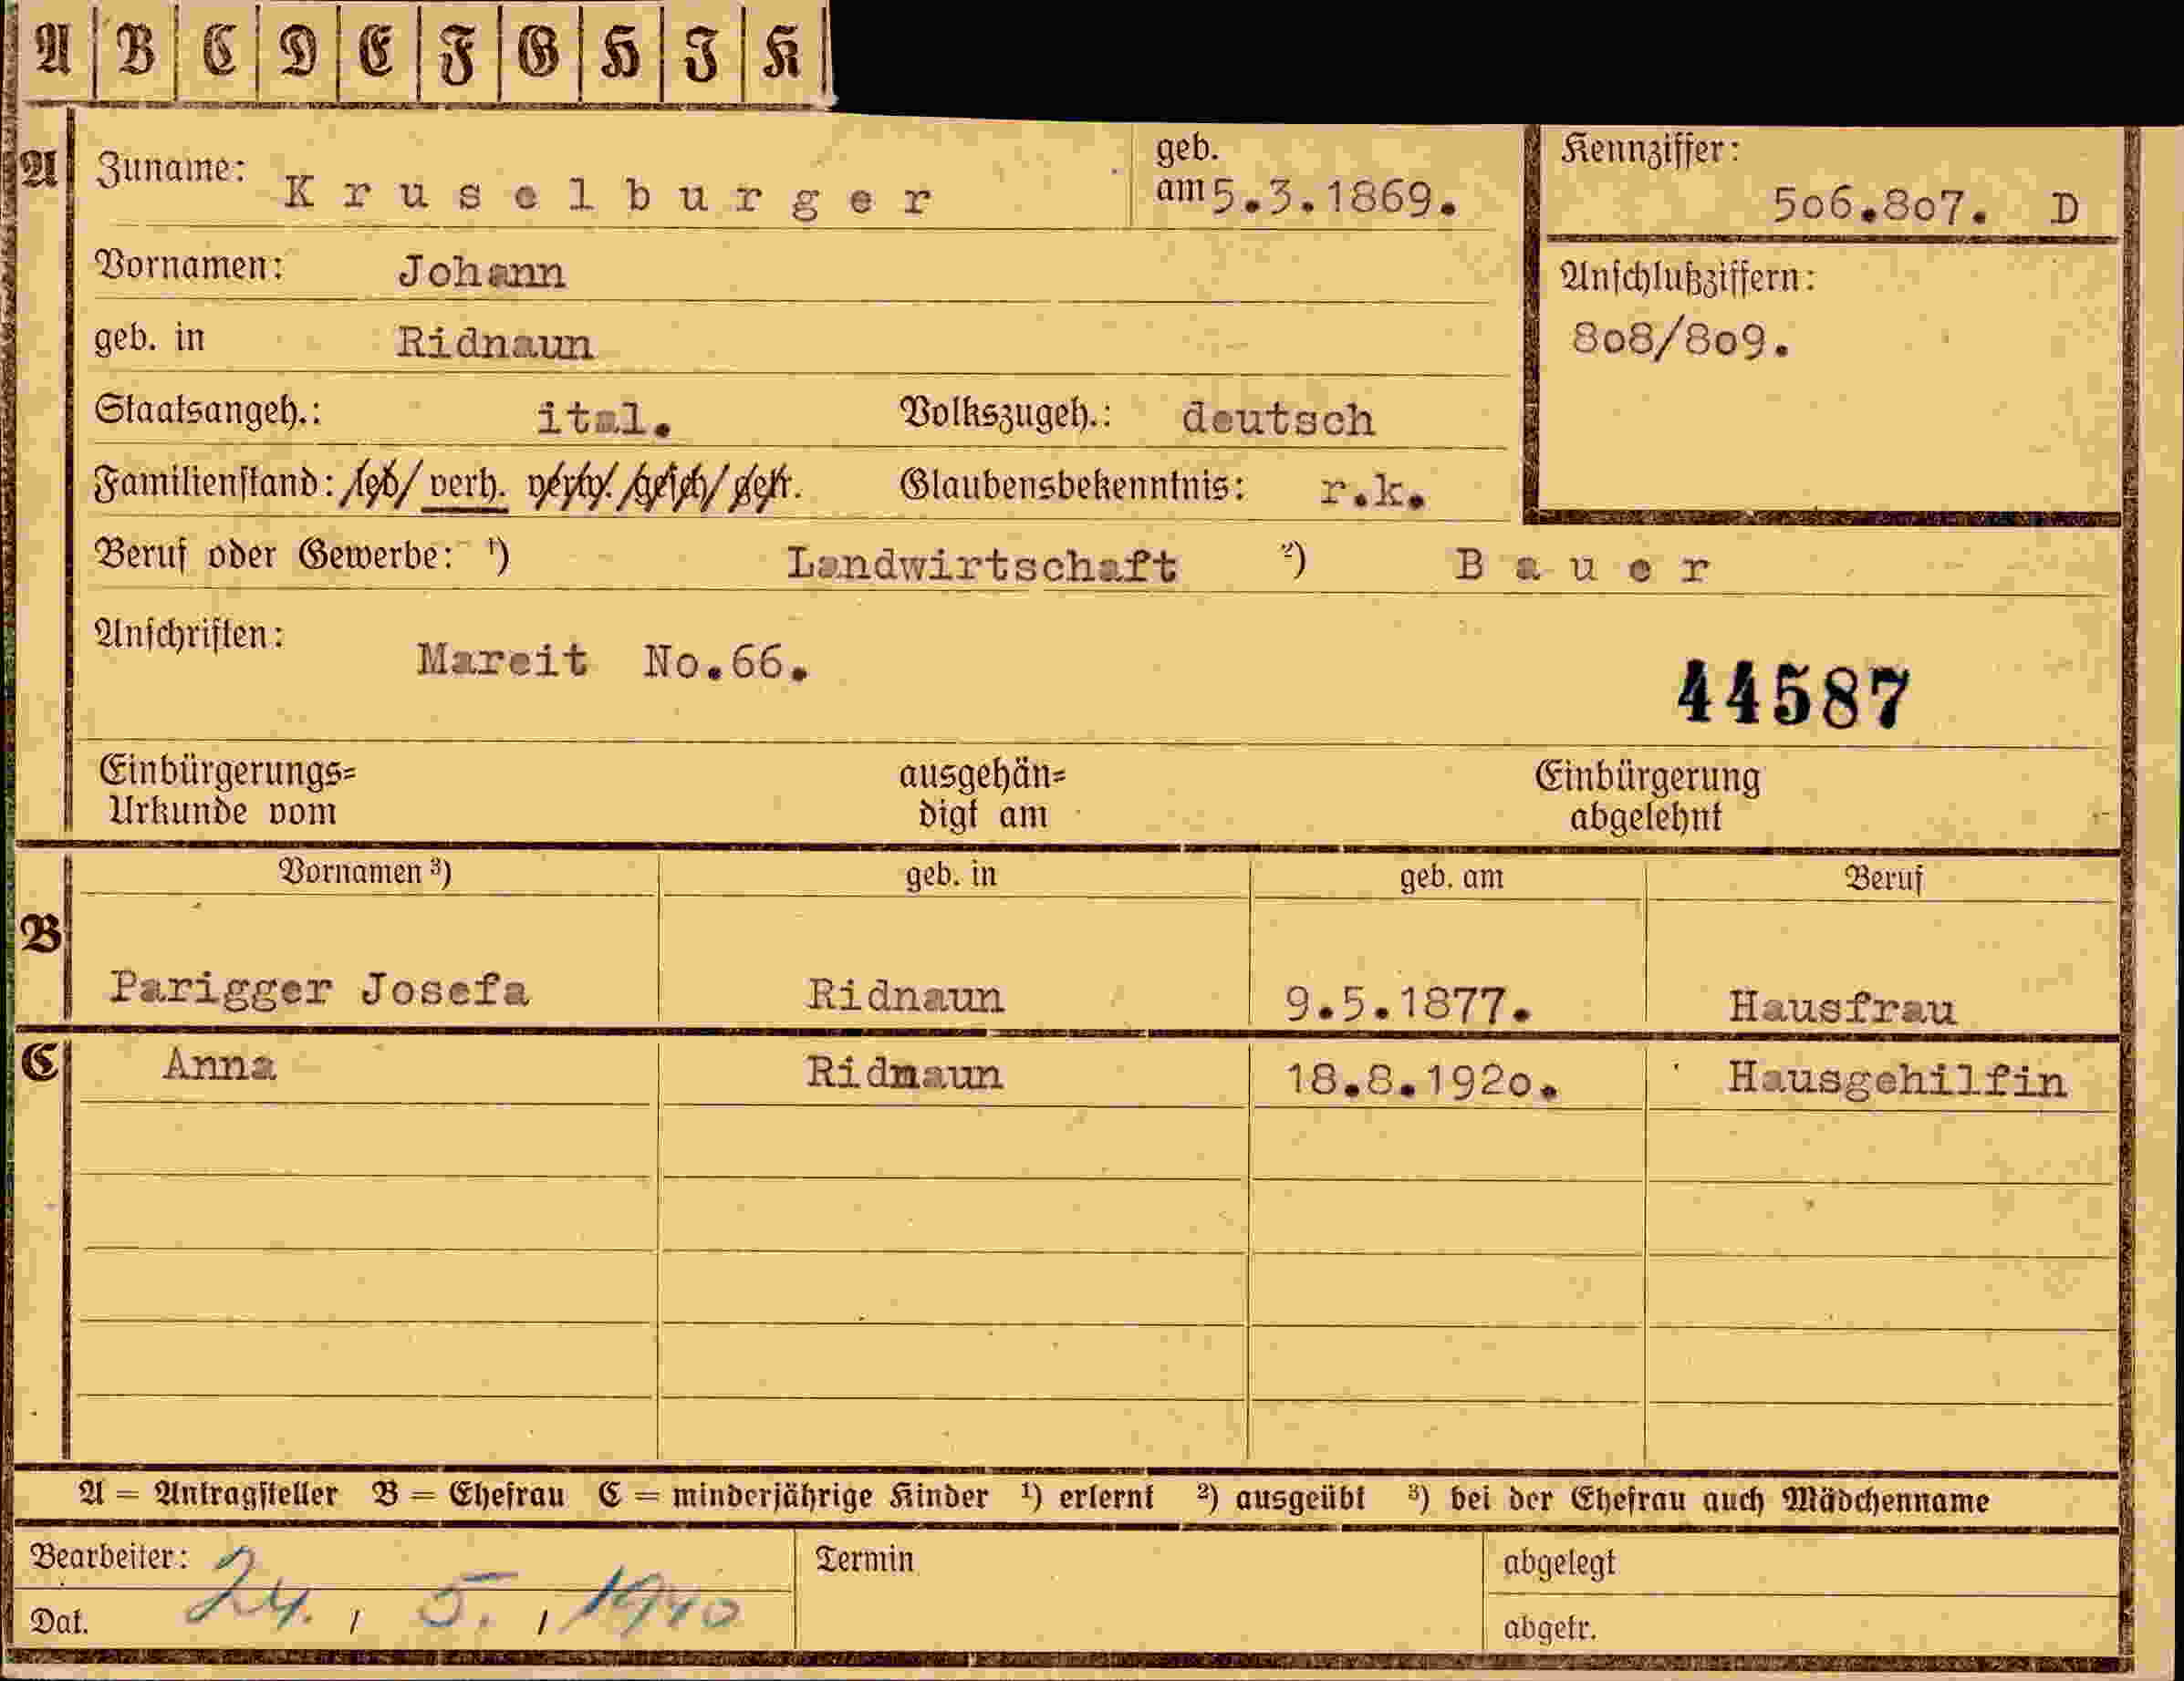 A B C D E F G H I K
A Zuname: Kruselburger geb. am 5.3.1869. Kennziffer: 506.807. D
Vornamen: Johann Anschlußziffern:
geb. in Ridnaun 808/809.
Staatsangeh.: ital. Volkszugeh.: deutsch
Familienstand: led/ verh. verw. /gesch/ getr. Glaubensbekenntnis: r.k.
Beruf oder Gewerbe: ¹) Landwirtschaft ²) Bauer
Anschriften: Mareit No.66.
44587
Einbürgerungs= ausgehän= Einbürgerung
Urkunde vom digt am abgelehnt
Vornamen ³) geb. in geb. am Beruf
B Parigger Josefa Ridnaun 9.5.1877. Hausfrau
C Anna Ridnaun 18.8.1920. Hausgehilfin
A = Antragsteller B = Ehefrau C = minderjährige Kinder ¹) erlernt ²) ausgeübt ³) bei der Ehefrau auch Mädchenname
Bearbeiter: Termin abgelegt
Dat. 24. / 5. / 1940 abgetr.